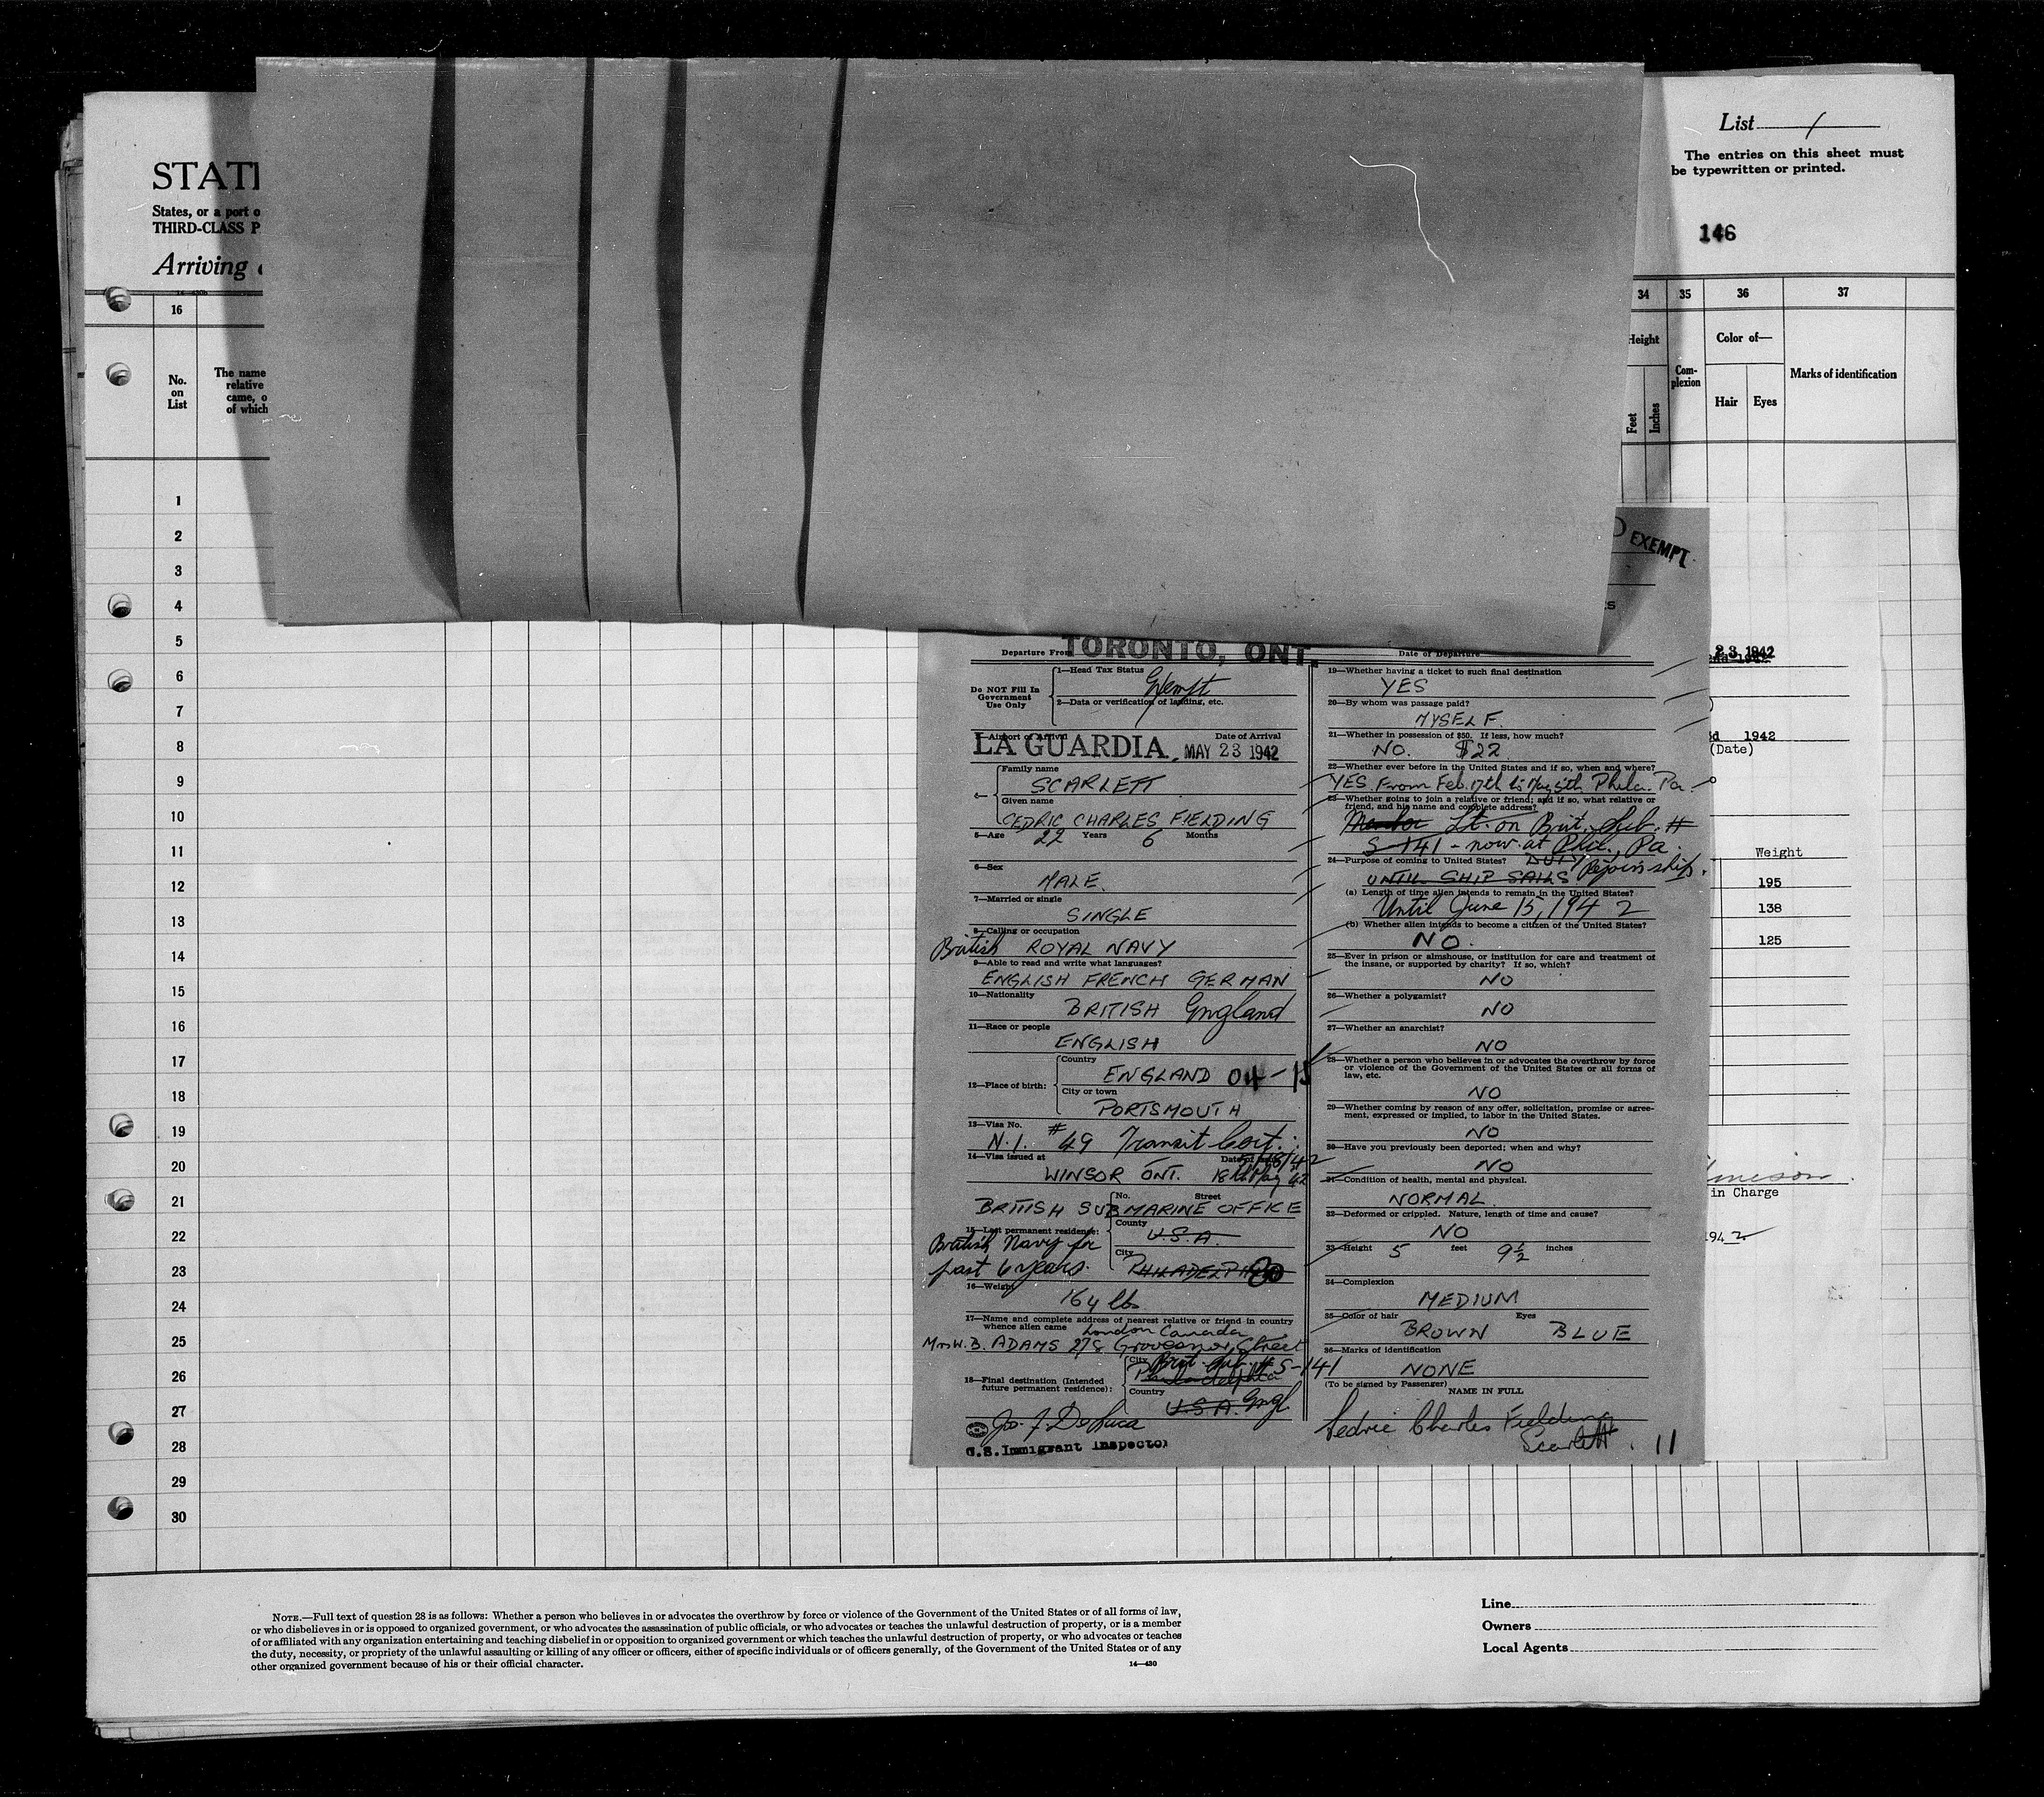 List 1
The entries on this sheet must
be typewritten or printed.
146
STAT
States, or a port o
THIRD-CLASS P
Arriving
16
34 35 36 37
No.
on
List
The name
relative
came, o
of which
Height
Feet
Inches
Com-
plexion
Color of—
Hair Eyes
Marks of identification
1
2
3
4
5
6
7
8
9
10
11
12
13
14
15
16
17
18
19
20
21
22
23
24
25
26
27
28
29
30
EXEMPT
Departure From TORONTO, ONT.
Date of Departure
Do NOT Fill In
Government
Use Only
1—Head Tax Status
Exempt
2—Data or verification of landing, etc.
3—Airport of Arrival Date of Arrival
LA GUARDIA, MAY 23 1942
4— Family name
SCARLETT
Given name
CEDRIC CHARLES FIELDING
5—Age 22 Years 6 Months
6—Sex
MALE.
7—Married or single
SINGLE
8—Calling or occupation
British ROYAL NAVY
9—Able to read and write what languages?
ENGLISH FRENCH GERMAN
10—Nationality
BRITISH England
11—Race or people
ENGLISH
12—Place of birth:
Country
ENGLAND 04-15
City or town
PORTSMOUTH
13—Visa No.
N.I. # 49 Transit Cert.
14—Visa issued at Date of
WINSOR ONT. 18th May 42
No. Street
BRITISH SUBMARINE OFFICE
15—Last permanent residence:
County
U.S.A.
British Navy for
past 6 years.
City
PHILADELPHIA
16—Weight
164 lbs
17—Name and complete address of nearest relative or friend in country
whence alien came
London Canada
Mrs W. B. ADAMS 278 Grovesnor Street
18—Final destination (Intended
future permanent residence):
City Brit. Sub. # S-141
Philadelphia
Country
U.S.A. Engl
Jo. F. DeLuca
U.S. Immigrant Inspector
19—Whether having a ticket to such final destination
YES
20—By whom was passage paid?
MYSELF.
21—Whether in possession of $50. If less, how much?
NO. $22
22—Whether ever before in the United States and if so, when and where?
YES. From Feb. 17th to May 5th Phila. Pa.
23—Whether going to join a relative or friend; and if so, what relative or
friend, and his name and complete address?
Member Lt. on Brit. Sub. #
S-141 - now at Phil., Pa.
24—Purpose of coming to United States? DUTY
UNTIL SHIP SAILS Rejoin ship.
(a) Length of time alien intends to remain in the United States?
Until June 15, 1942
(b) Whether alien intends to become a citizen of the United States?
NO.
25—Ever in prison or almshouse, or institution for care and treatment of
the insane, or supported by charity? If so, which?
NO
26—Whether a polygamist?
NO
27—Whether an anarchist?
NO
28—Whether a person who believes in or advocates the overthrow by force
or violence of the Government of the United States or all forms of
law, etc.
NO
29—Whether coming by reason of any offer, solicitation, promise or agree-
ment, expressed or implied, to labor in the United States.
NO
30—Have you previously been deported; when and why?
NO
31—Condition of health, mental and physical.
NORMAL
32—Deformed or crippled. Nature, length of time and cause?
NO
33—Height 5 feet 9½ inches
34—Complexion
MEDIUM
35—Color of hair Eyes
BROWN BLUE
36—Marks of identification
NONE
(To be signed by Passenger)
NAME IN FULL
Cedric Charles Fielding
Scarlett. 11
23, 1942
1942
(Date)
Weight
195
138
125
in Charge
1942
NOTE.—Full text of question 28 is as follows: Whether a person who believes in or advocates the overthrow by force or violence of the Government of the United States or of all forms of law,
or who disbelieves in or is opposed to organized government, or who advocates the assassination of public officials, or who advocates or teaches the unlawful destruction of property, or is a member
of or affiliated with any organization entertaining and teaching disbelief in or opposition to organized government or which teaches the unlawful destruction of property, or who advocates or teaches
the duty, necessity, or propriety of the unlawful assaulting or killing of any officer or officers, either of specific individuals or of officers generally, of the Government of the United States or of any
other organized government because of his or their official character.
14—430
Line
Owners
Local Agents